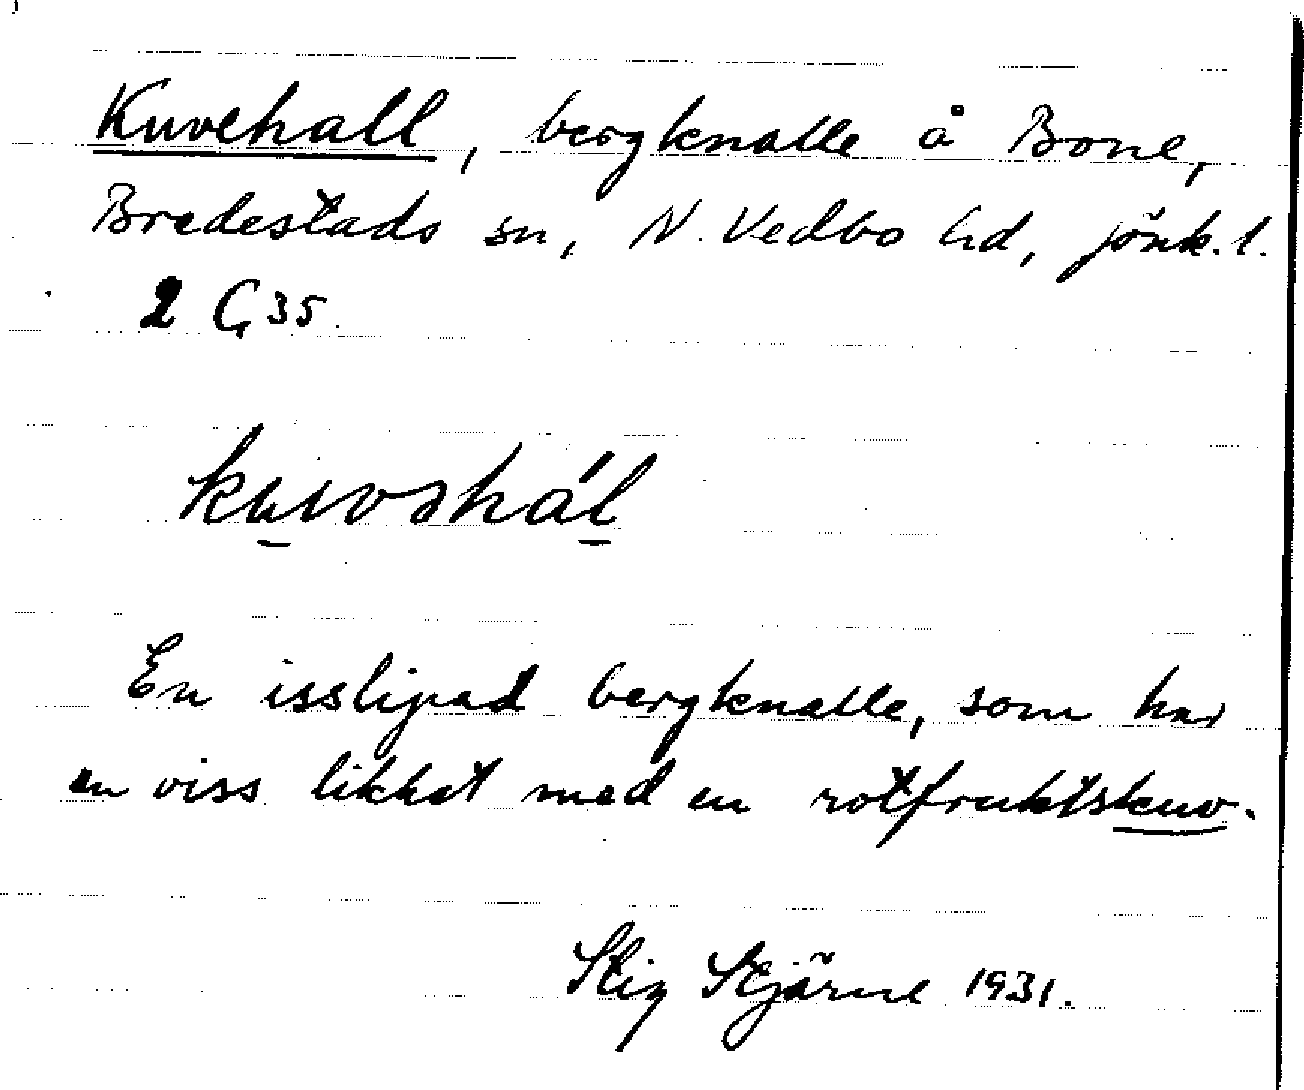 Kuvehall, bergknalle å Bone,
Bredestads sn, N. Vedbo hd, Jönk. l.
2 G 35.
kuvəhál
En isslipad bergknalle, som har
en viss likhet med en rotfruktskuv.
Stig Stjärne 1931.